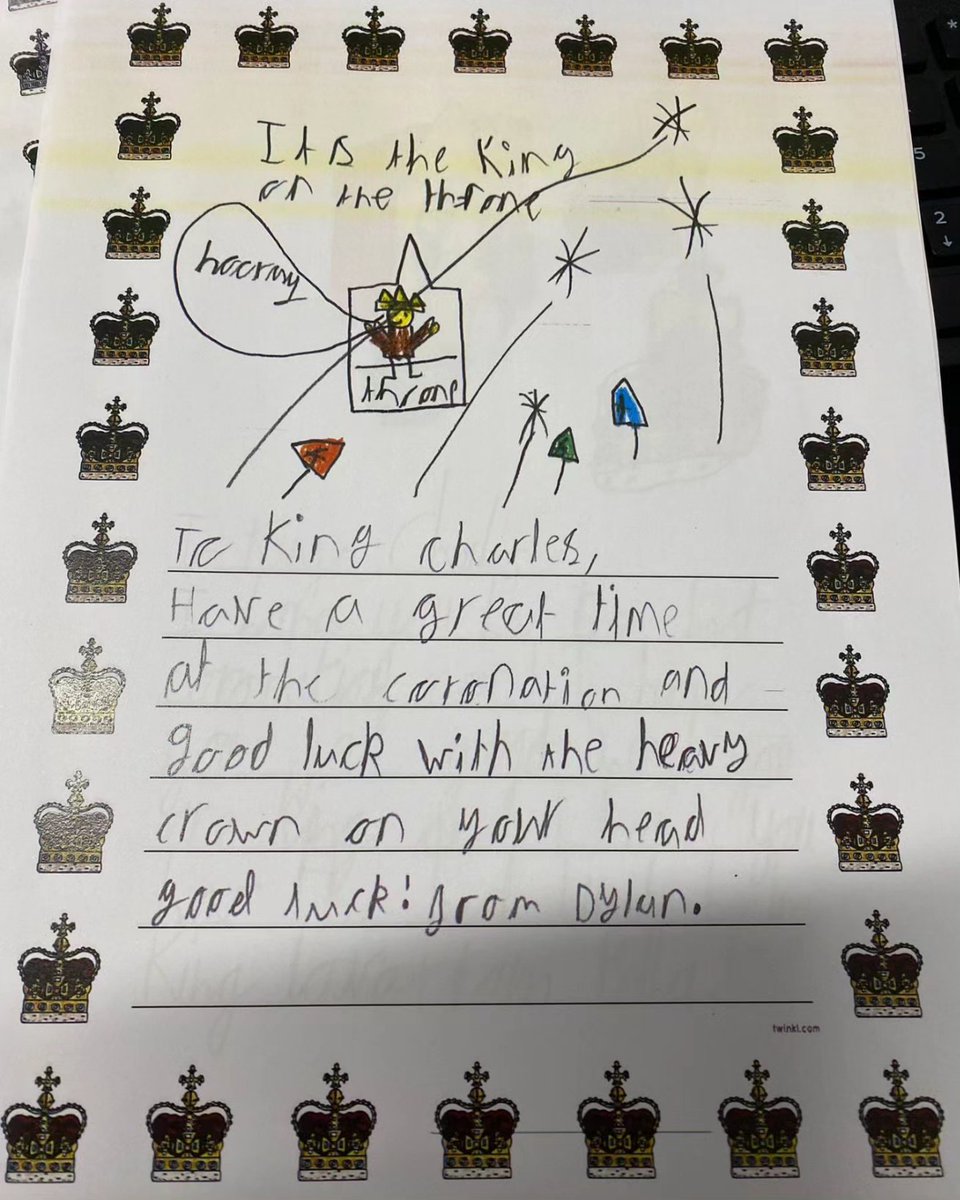 It is the King
on the throne
hooray
throne
To King charles,
Have a great time
at the coronation and
good luck with the heavy
crown on your head
good luck! from Dylan.
twinkl.com
5
2